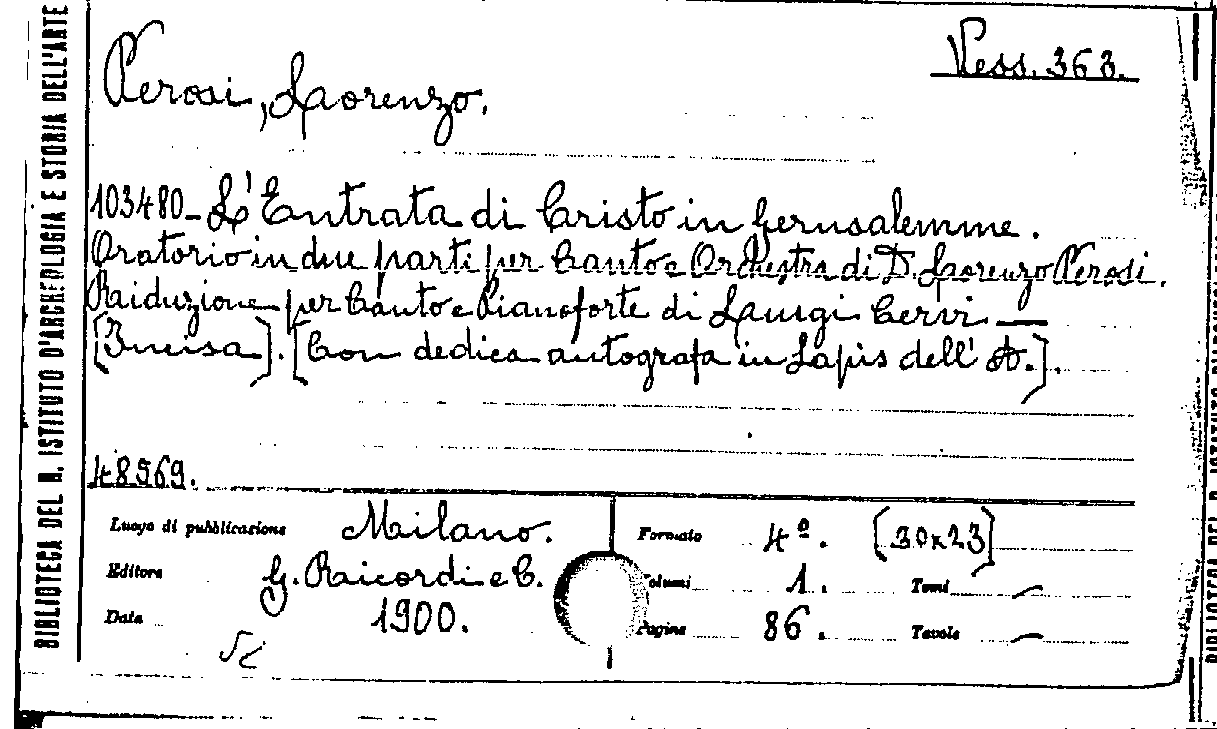 BIBLIOTECA DEL R. ISTITUTO D'ARCHEOLOGIA E STORIA DELL'ARTE
Vess. 363.
Perosi, Lorenzo.
103480_ L'Entrata di Cristo in Gerusalemme.
Oratorio in due parti per Canto e Orchestra di D. Lorenzo Perosi.
Riduzione per Canto e Pianoforte di Luigi Cervi —
[Incisa]. [Con dedica autografa in Lapis dell'A.].
48569.
Luogo di pubblicazione Milano.
Editore G. Ricordi e C.
Data 1900.
Formato 4º. [30x23]
Volumi 1. Tomi —
Pagine 86. Tavole —